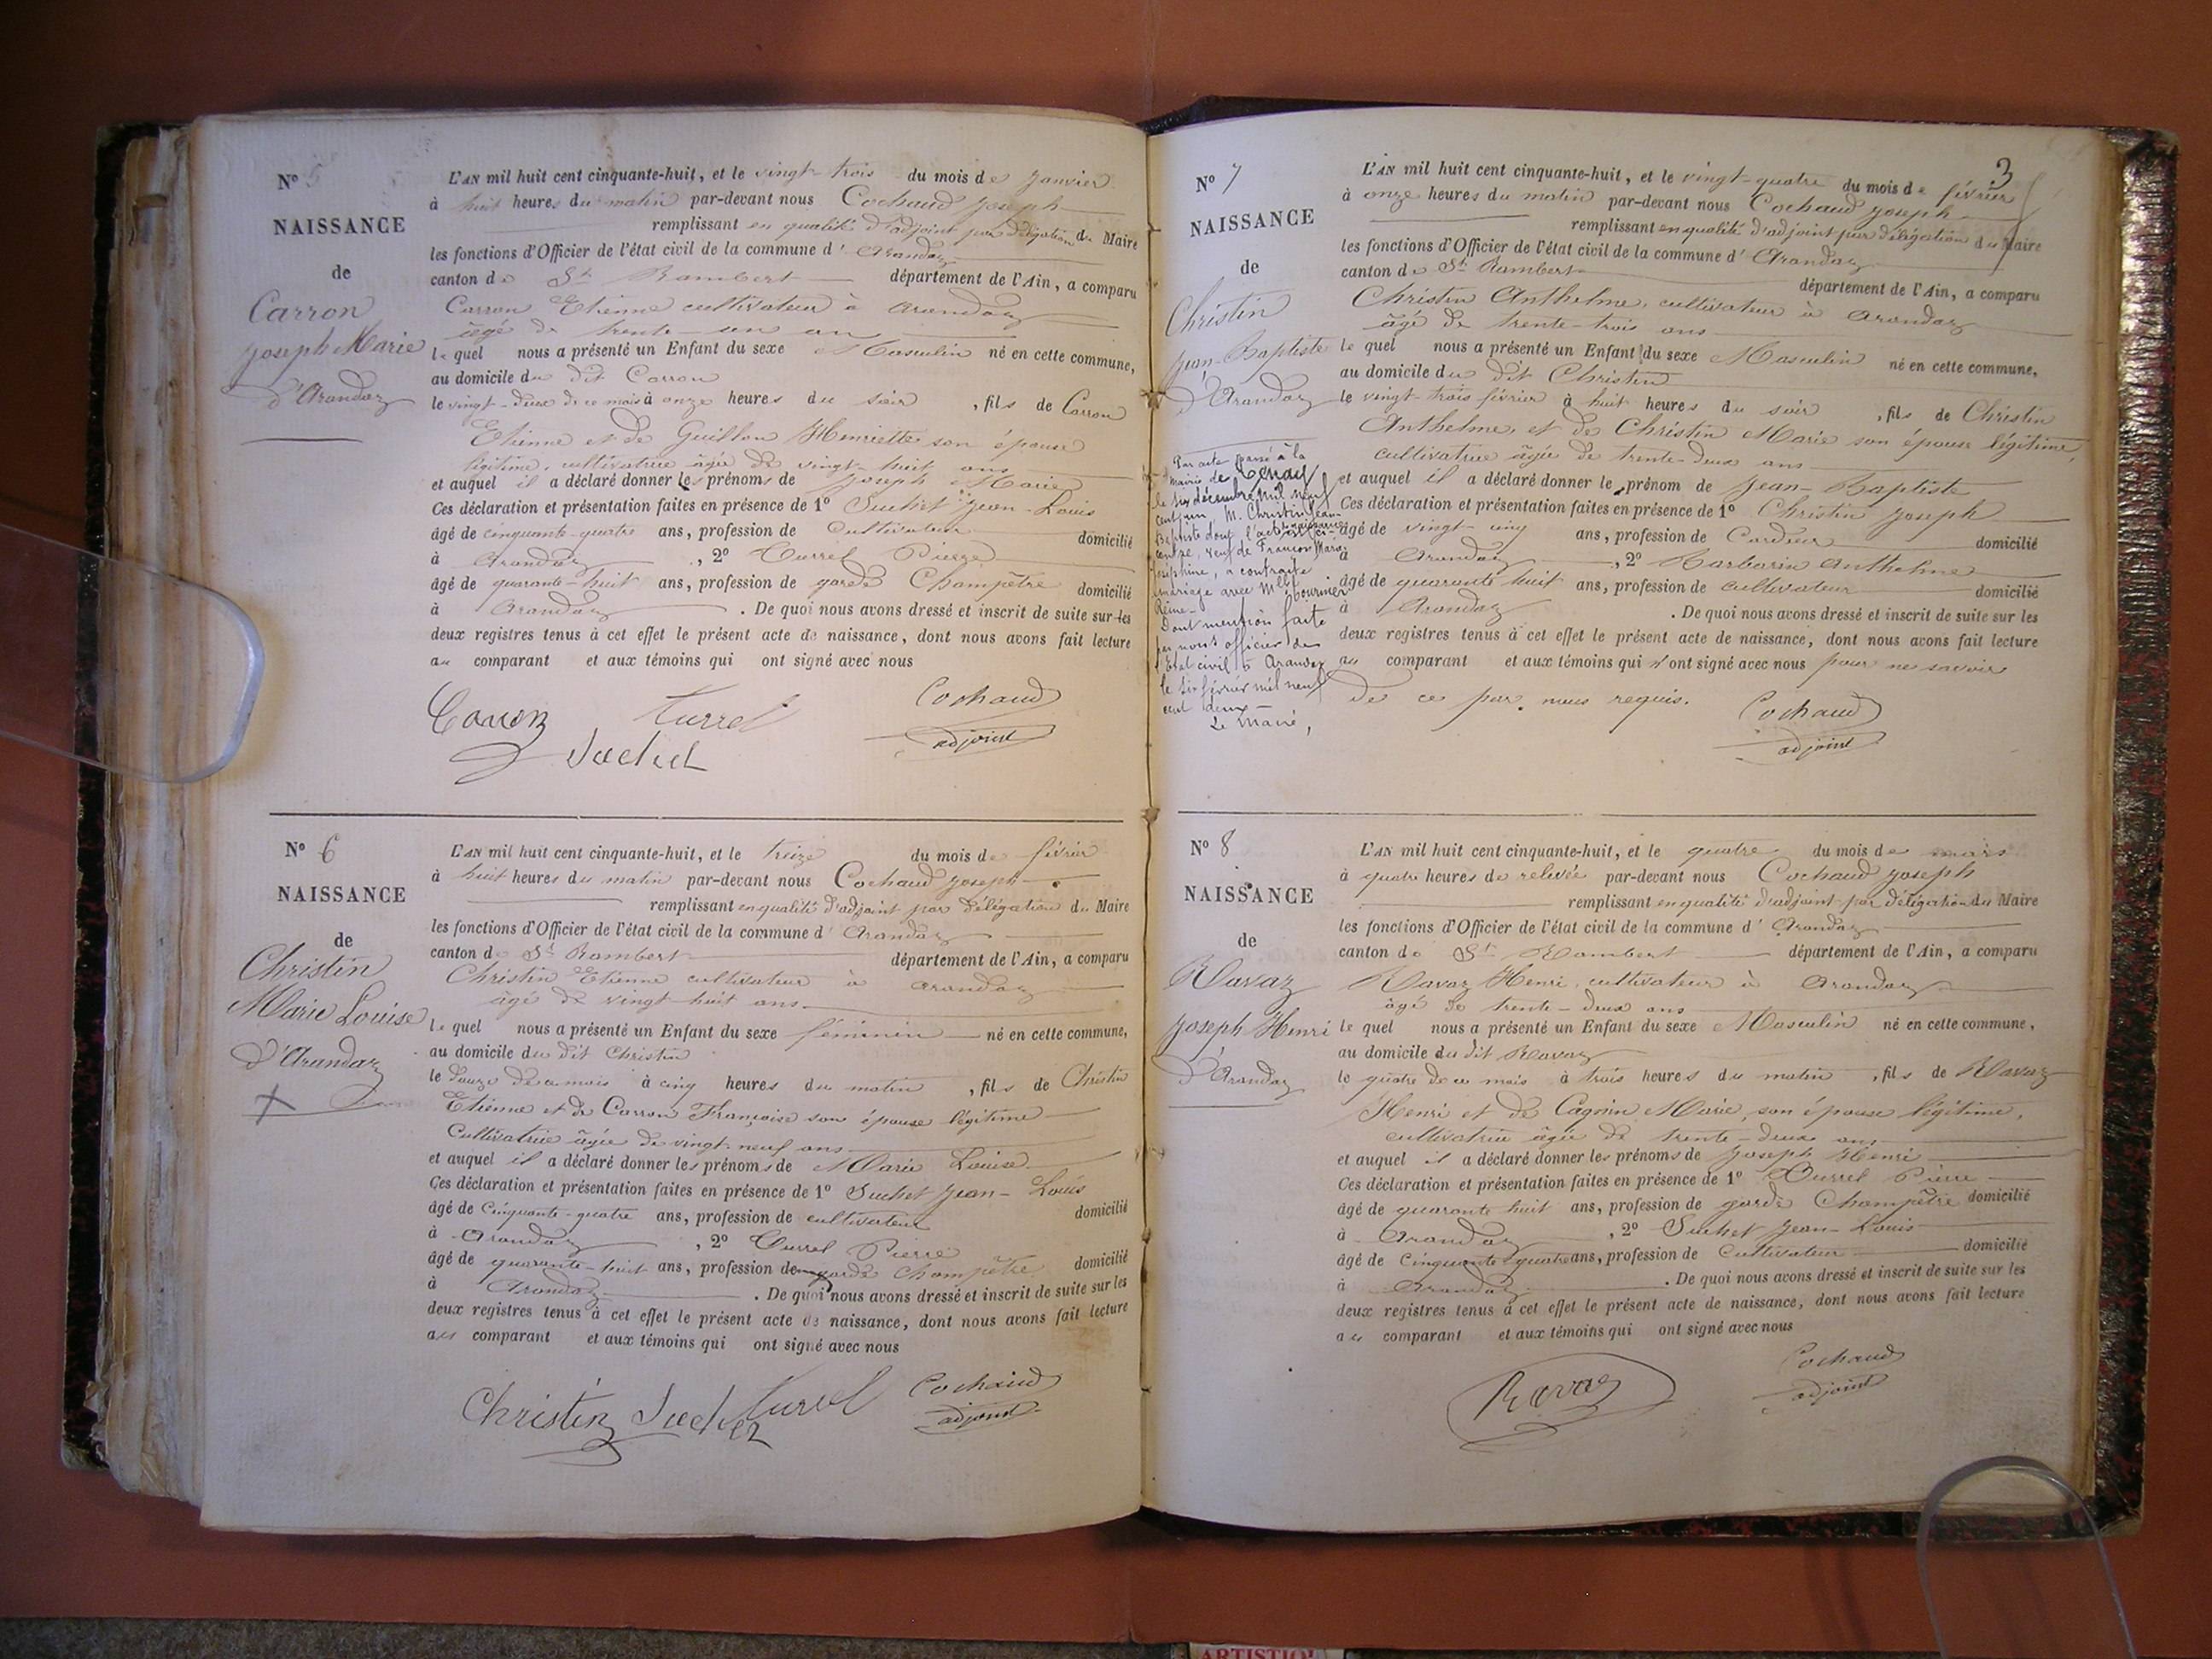 N° 5
NAISSANCE
de
Carron
Joseph Marie
d'Arandaz
L'AN mil huit cent cinquante-huit, et le vingt-trois du mois de Janvier
à huit heures du matin par-devant nous Cochaud Joseph
remplissant en qualité d'adjoint par délégation du Maire
les fonctions d'Officier de l'état civil de la commune d'Arandaz
canton de St Rambert département de l'Ain, a comparu
Carron Etienne cultivateur à Arandaz
âgé de trente-un an
lequel nous a présenté un Enfant du sexe Masculin né en cette commune,
au domicile du dit Carron
le vingt-deux de ce mois à onze heures du soir, fils de Carron
Etienne et de Guillon Henriette son épouse
légitime, cultivatrice âgée de vingt-huit ans
et auquel il a déclaré donner les prénoms de Joseph Marie
Ces déclaration et présentation faites en présence de 1° Suchet Jean-Louis
âgé de cinquante-quatre ans, profession de Cultivateur domicilié
à Arandaz, 2° Turrel Pierre
âgé de quarante-huit ans, profession de garde Champêtre domicilié
à Arandaz. De quoi nous avons dressé et inscrit de suite sur les
deux registres tenus à cet effet le présent acte de naissance, dont nous avons fait lecture
au comparant et aux témoins qui ont signé avec nous
Carron Turrel Cochaud
Suchet adjoint
N° 6
NAISSANCE
de
Christin
Marie Louise
d'Arandaz
L'AN mil huit cent cinquante-huit, et le treize du mois de février
à huit heures du matin par-devant nous Cochaud Joseph
remplissant en qualité d'adjoint par délégation du Maire
les fonctions d'Officier de l'état civil de la commune d'Arandaz
canton de St Rambert département de l'Ain, a comparu
Christin Etienne cultivateur à Arandaz
âgé de vingt-huit ans
lequel nous a présenté un Enfant du sexe féminin né en cette commune,
au domicile du dit Christin
le douze de ce mois à cinq heures du matin, fils de Christin
Etienne et de Carron Françoise son épouse légitime
Cultivatrice âgée de vingt-neuf ans
et auquel il a déclaré donner les prénoms de Marie Louise
Ces déclaration et présentation faites en présence de 1° Suchet Jean-Louis
âgé de Cinquante-quatre ans, profession de cultivateur domicilié
à Arandaz, 2° Turrel Pierre
âgé de quarante-huit ans, profession de garde champêtre domicilié
à Arandaz. De quoi nous avons dressé et inscrit de suite sur les
deux registres tenus à cet effet le présent acte de naissance, dont nous avons fait lecture
au comparant et aux témoins qui ont signé avec nous
Christin Suchet Turrel Cochaud
adjoint
3
N° 7
NAISSANCE
de
Christin
Jean-Baptiste
d'Arandaz
Par acte passé à la
mairie de Tenay
le six décembre mil neuf
cent un M. Christin Jean
Baptiste dont l'acte de naissance est ci-
contre, veuf de Françon Marie
Joséphine, a contracté
mariage avec Mlle
Reine
Dont mention faite
par nous officier de
l'Etat civil à Arandaz
le six février mil neuf
cent deux
Le Maire,
L'AN mil huit cent cinquante-huit, et le vingt-quatre du mois de février
à onze heures du matin par-devant nous Cochaud Joseph
remplissant en qualité d'adjoint par délégation du Maire
les fonctions d'Officier de l'état civil de la commune d'Arandaz
canton de St Rambert département de l'Ain, a comparu
Christin Anthelme, cultivateur à Arandaz
âgé de trente-trois ans
lequel nous a présenté un Enfant du sexe Masculin né en cette commune,
au domicile du dit Christin
le vingt-trois février à huit heures du soir, fils de Christin
Anthelme, et de Christin Marie son épouse légitime,
cultivatrice âgée de trente-deux ans
et auquel il a déclaré donner le prénom de Jean-Baptiste
Ces déclaration et présentation faites en présence de 1° Christin Joseph
âgé de vingt-cinq ans, profession de Cardeur domicilié
à Arandaz, 2° Barbarin Anthelme
âgé de quarante huit ans, profession de cultivateur domicilié
à Arandaz. De quoi nous avons dressé et inscrit de suite sur les
deux registres tenus à cet effet le présent acte de naissance, dont nous avons fait lecture
au comparant et aux témoins qui n'ont signé avec nous pour ne savoir
de ce par nous requis. Cochaud
adjoint
N° 8
NAISSANCE
de
Ravaz
Joseph Henri
d'Arandaz
L'AN mil huit cent cinquante-huit, et le quatre du mois de mars
à quatre heures de relevée par-devant nous Cochaud Joseph
remplissant en qualité d'adjoint par délégation du Maire
les fonctions d'Officier de l'état civil de la commune d'Arandaz
canton de St Rambert département de l'Ain, a comparu
Ravaz Henri, cultivateur à Arandaz
âgé de trente-deux ans
lequel nous a présenté un Enfant du sexe Masculin né en cette commune,
au domicile du dit Ravaz
le quatre de ce mois à trois heures du matin, fils de Ravaz
Henri et de Cagnin Marie, son épouse légitime,
cultivatrice âgée de trente-deux ans
et auquel il a déclaré donner les prénoms de Joseph Henri
Ces déclaration et présentation faites en présence de 1° Turrel Pierre
âgé de quarante huit ans, profession de garde Champêtre domicilié
à Arandaz, 2° Suchet Jean-Louis
âgé de Cinquante-quatre ans, profession de Cultivateur domicilié
à Arandaz. De quoi nous avons dressé et inscrit de suite sur les
deux registres tenus à cet effet le présent acte de naissance, dont nous avons fait lecture
au comparant et aux témoins qui ont signé avec nous
Ravaz Cochaud
adjoint